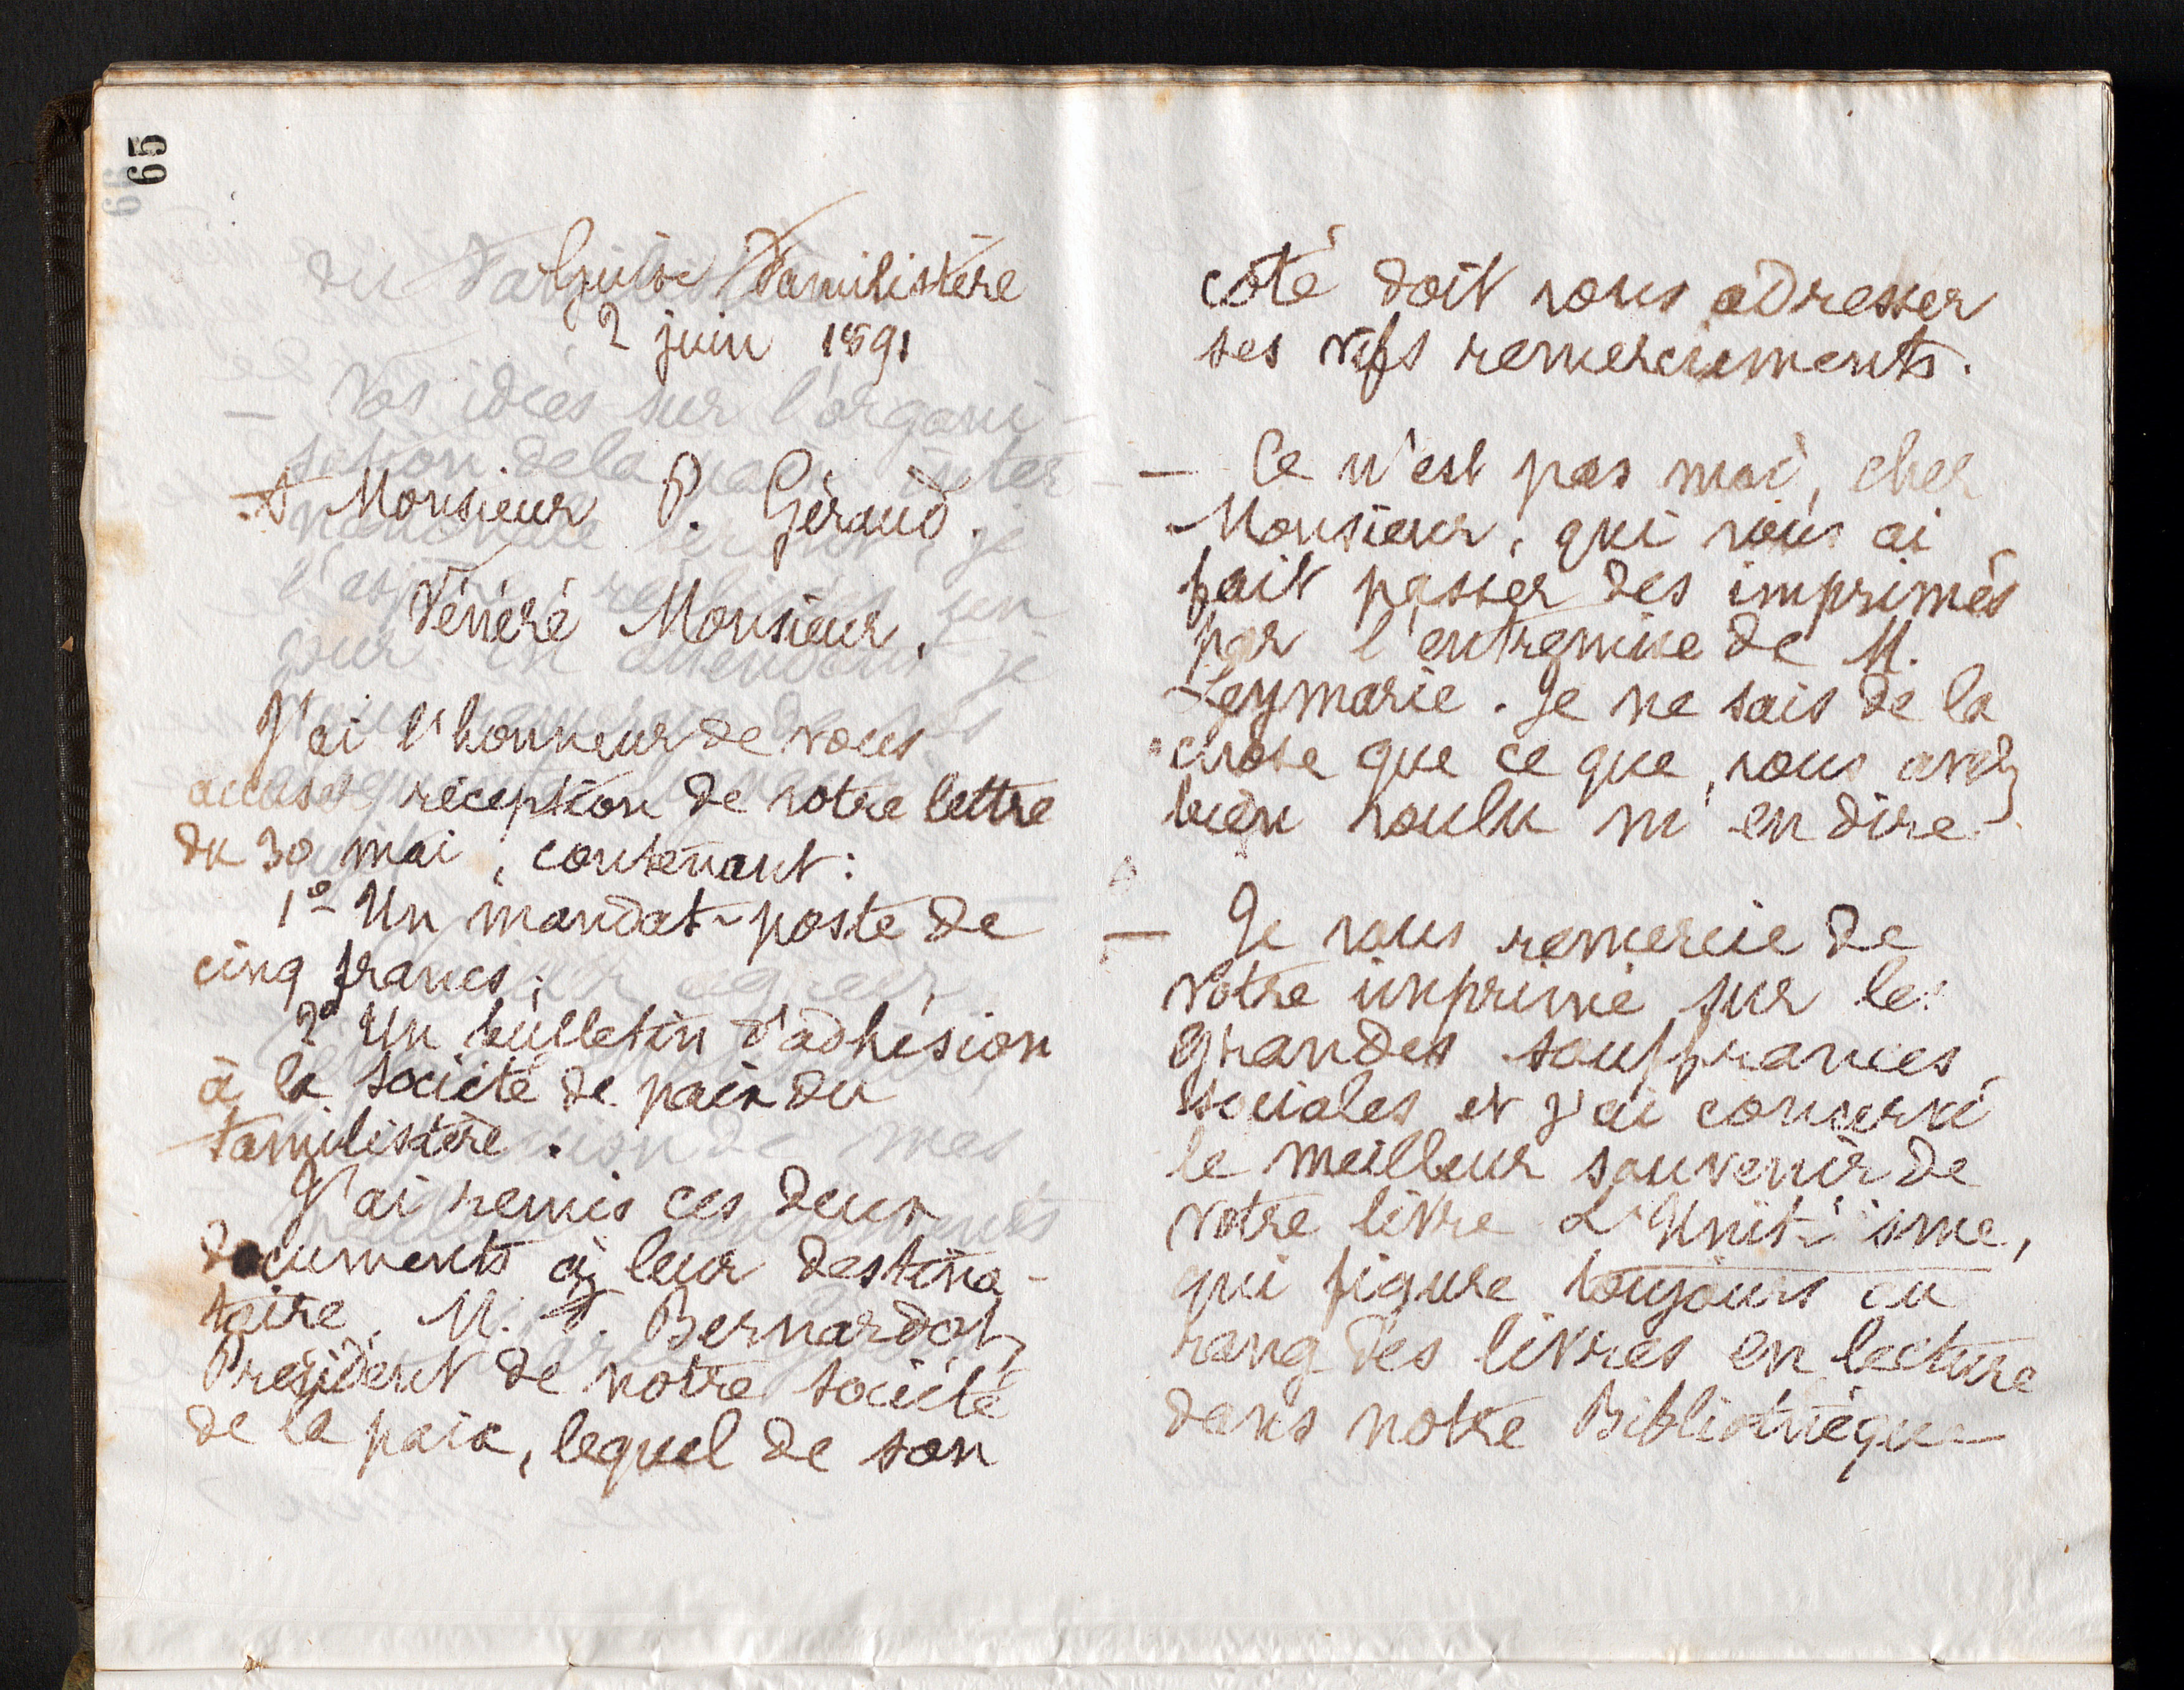 65
Guise Familistère
2 juin 1891
A Monsieur P. Géraud.
Vénéré Monsieur,
J'ai l'honneur de vous
accuser réception de votre lettre
du 30 mai, contenant:
1º Un mandat-poste de
cinq francs;
2º Un bulletin d'adhésion
à la société de paix du
Familistère.
J'ai remis ces deux
documents à leur destina-
taire, M. A. Bernardot,
Président de notre société
de la paix, lequel de son
côté doit vous adresser
ses vifs remerciements.
— Ce n'est pas moi, cher
Monsieur, qui vous ai
fait passer des imprimés
par l'entremise de M.
Leymarie. Je ne sais de la
chose que ce que vous avez
bien voulu m'en dire.
— Je vous remercie de
votre imprimé sur les
grandes souffrances
sociales et j'ai conservé
le meilleur souvenir de
votre livre L'Unitéisme,
qui figure toujours au
rang des livres en lecture
dans notre Bibliothèque